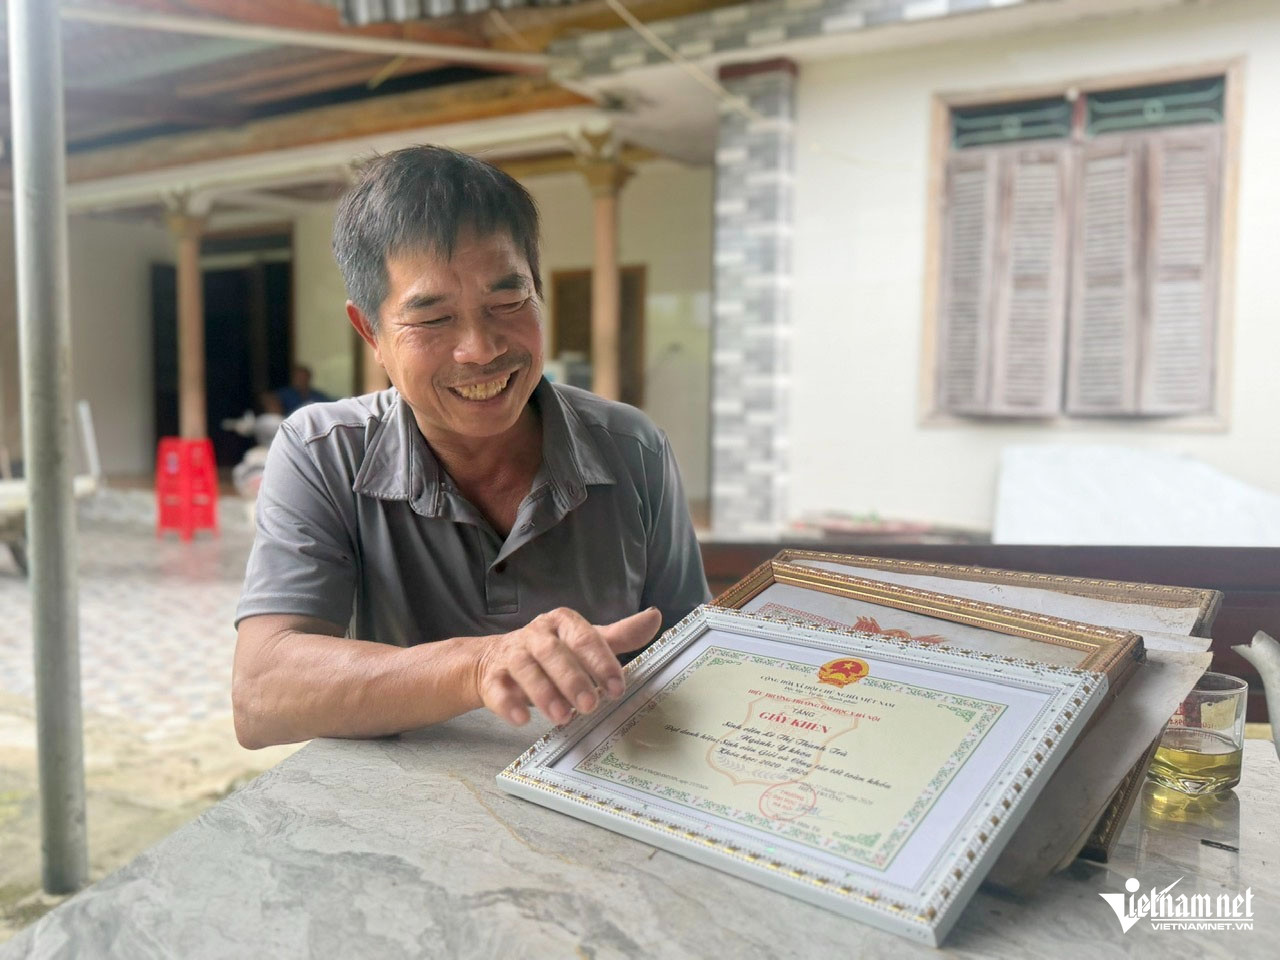 CỘNG HÒA XÃ HỘI CHỦ NGHĨA VIỆT NAM
Độc lập - Tự do - Hạnh phúc
HIỆU TRƯỞNG TRƯỜNG ĐẠI HỌC Y HÀ NỘI
TẶNG
GIẤY KHEN
Sinh viên Lê Thị Thanh Trà
Ngành: Y khoa
Khóa học: 2020 - 2026
Đạt danh hiệu: Sinh viên Giỏi và Công tác tốt toàn khóa
Vietnamnet
VIETNAMNET.VN